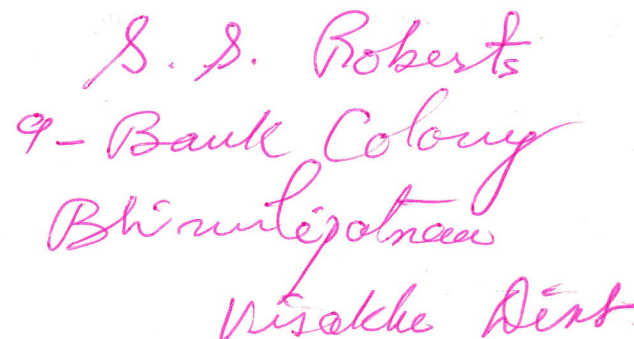 S. S. Roberts
9- Bank Colony
Bhimilipatnam
Visakha Dist